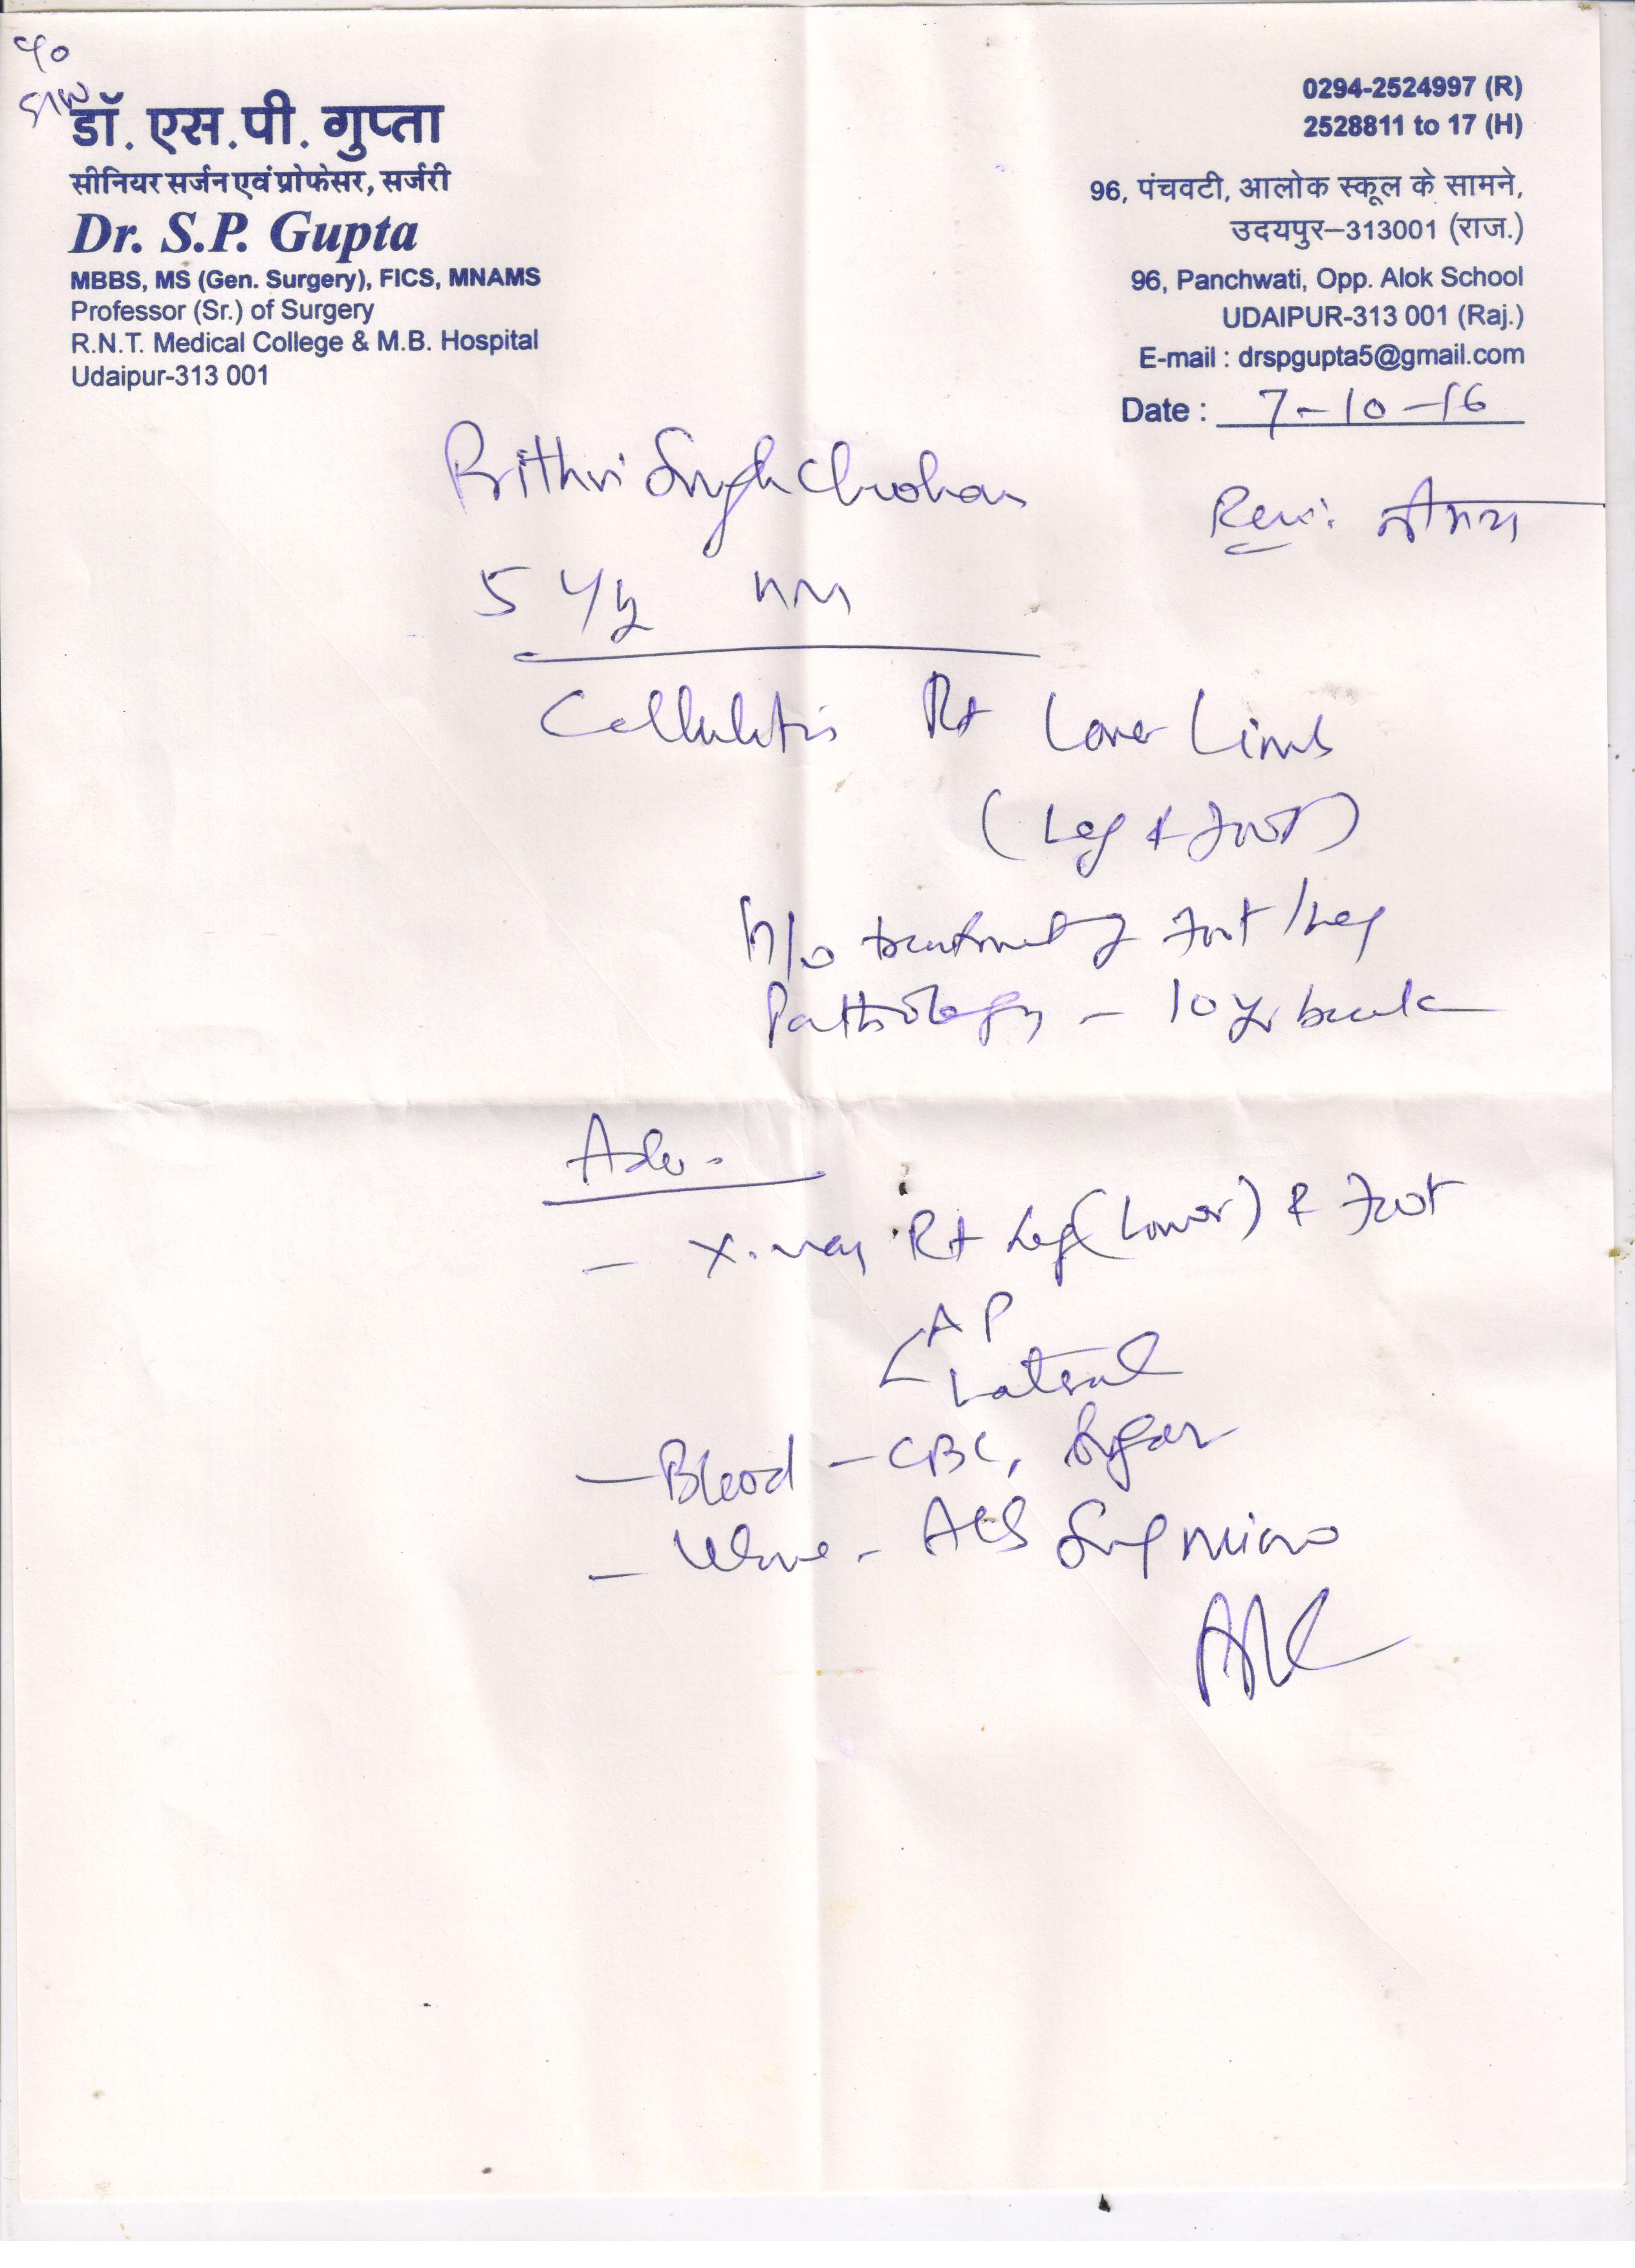 डॉ. एस.पी. गुप्ता
सीनियर सर्जन एवं प्रोफेसर, सर्जरी
Dr. S.P. Gupta
MBBS, MS (Gen. Surgery), FICS, MNAMS
Professor (Sr.) of Surgery
R.N.T. Medical College & M.B. Hospital
Udaipur-313 001
0294-2524997 (R)
2528811 to 17 (H)
96, पंचवटी, आलोक स्कूल के सामने,
उदयपुर–313001 (राज.)
96, Panchwati, Opp. Alok School
UDAIPUR-313 001 (Raj.)
E-mail : drspgupta5@gmail.com
Date : 7-10-16
Prithvi Singh Chouhan
Cellulitis Rt Lower Limb
(Leg & Foot)
H/o treatment of Foot/Leg
Pathology - 10 yr back
Adv.
- X-ray Rt Leg (Lower) & Foot
AP
Lateral
- Blood - CBC, Sugar
- Urine - Alb Sug Micro